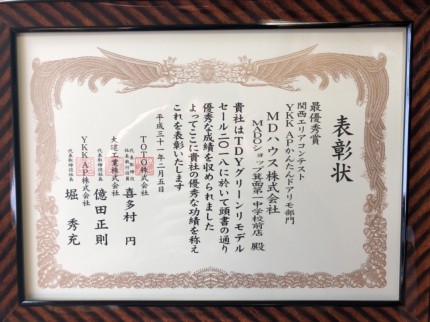 表彰状
最優秀賞
関西エリアコンテスト
YKK APかんたんドアリモ部門
MDハウス株式会社
MADOショップ箕面第一中学校前店 殿
貴社はTDYグリーンリモデル
セール二〇一八に於いて頭書の通り
優秀な成績を収められました
よってここに貴社の優秀な功績を称え
これを表彰いたします
平成三十一年二月五日
TOTO株式会社
代表取締役
社長執行役員 喜多村 円
大建工業株式会社
代表取締役社長 億田正則
YKK AP株式会社
代表取締役社長 堀 秀充